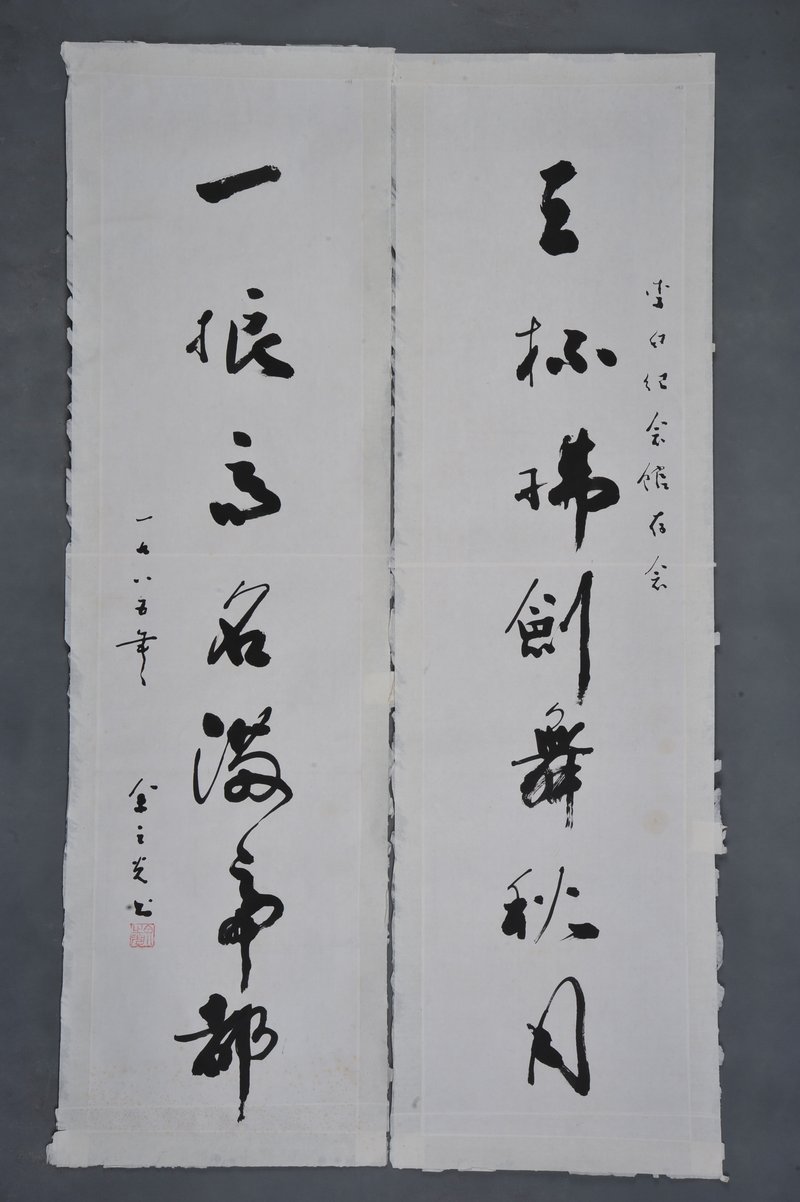 李白纪念馆存念
三杯拂劍舞秋月
一振高名滿帝都
一九八五年
金之光书